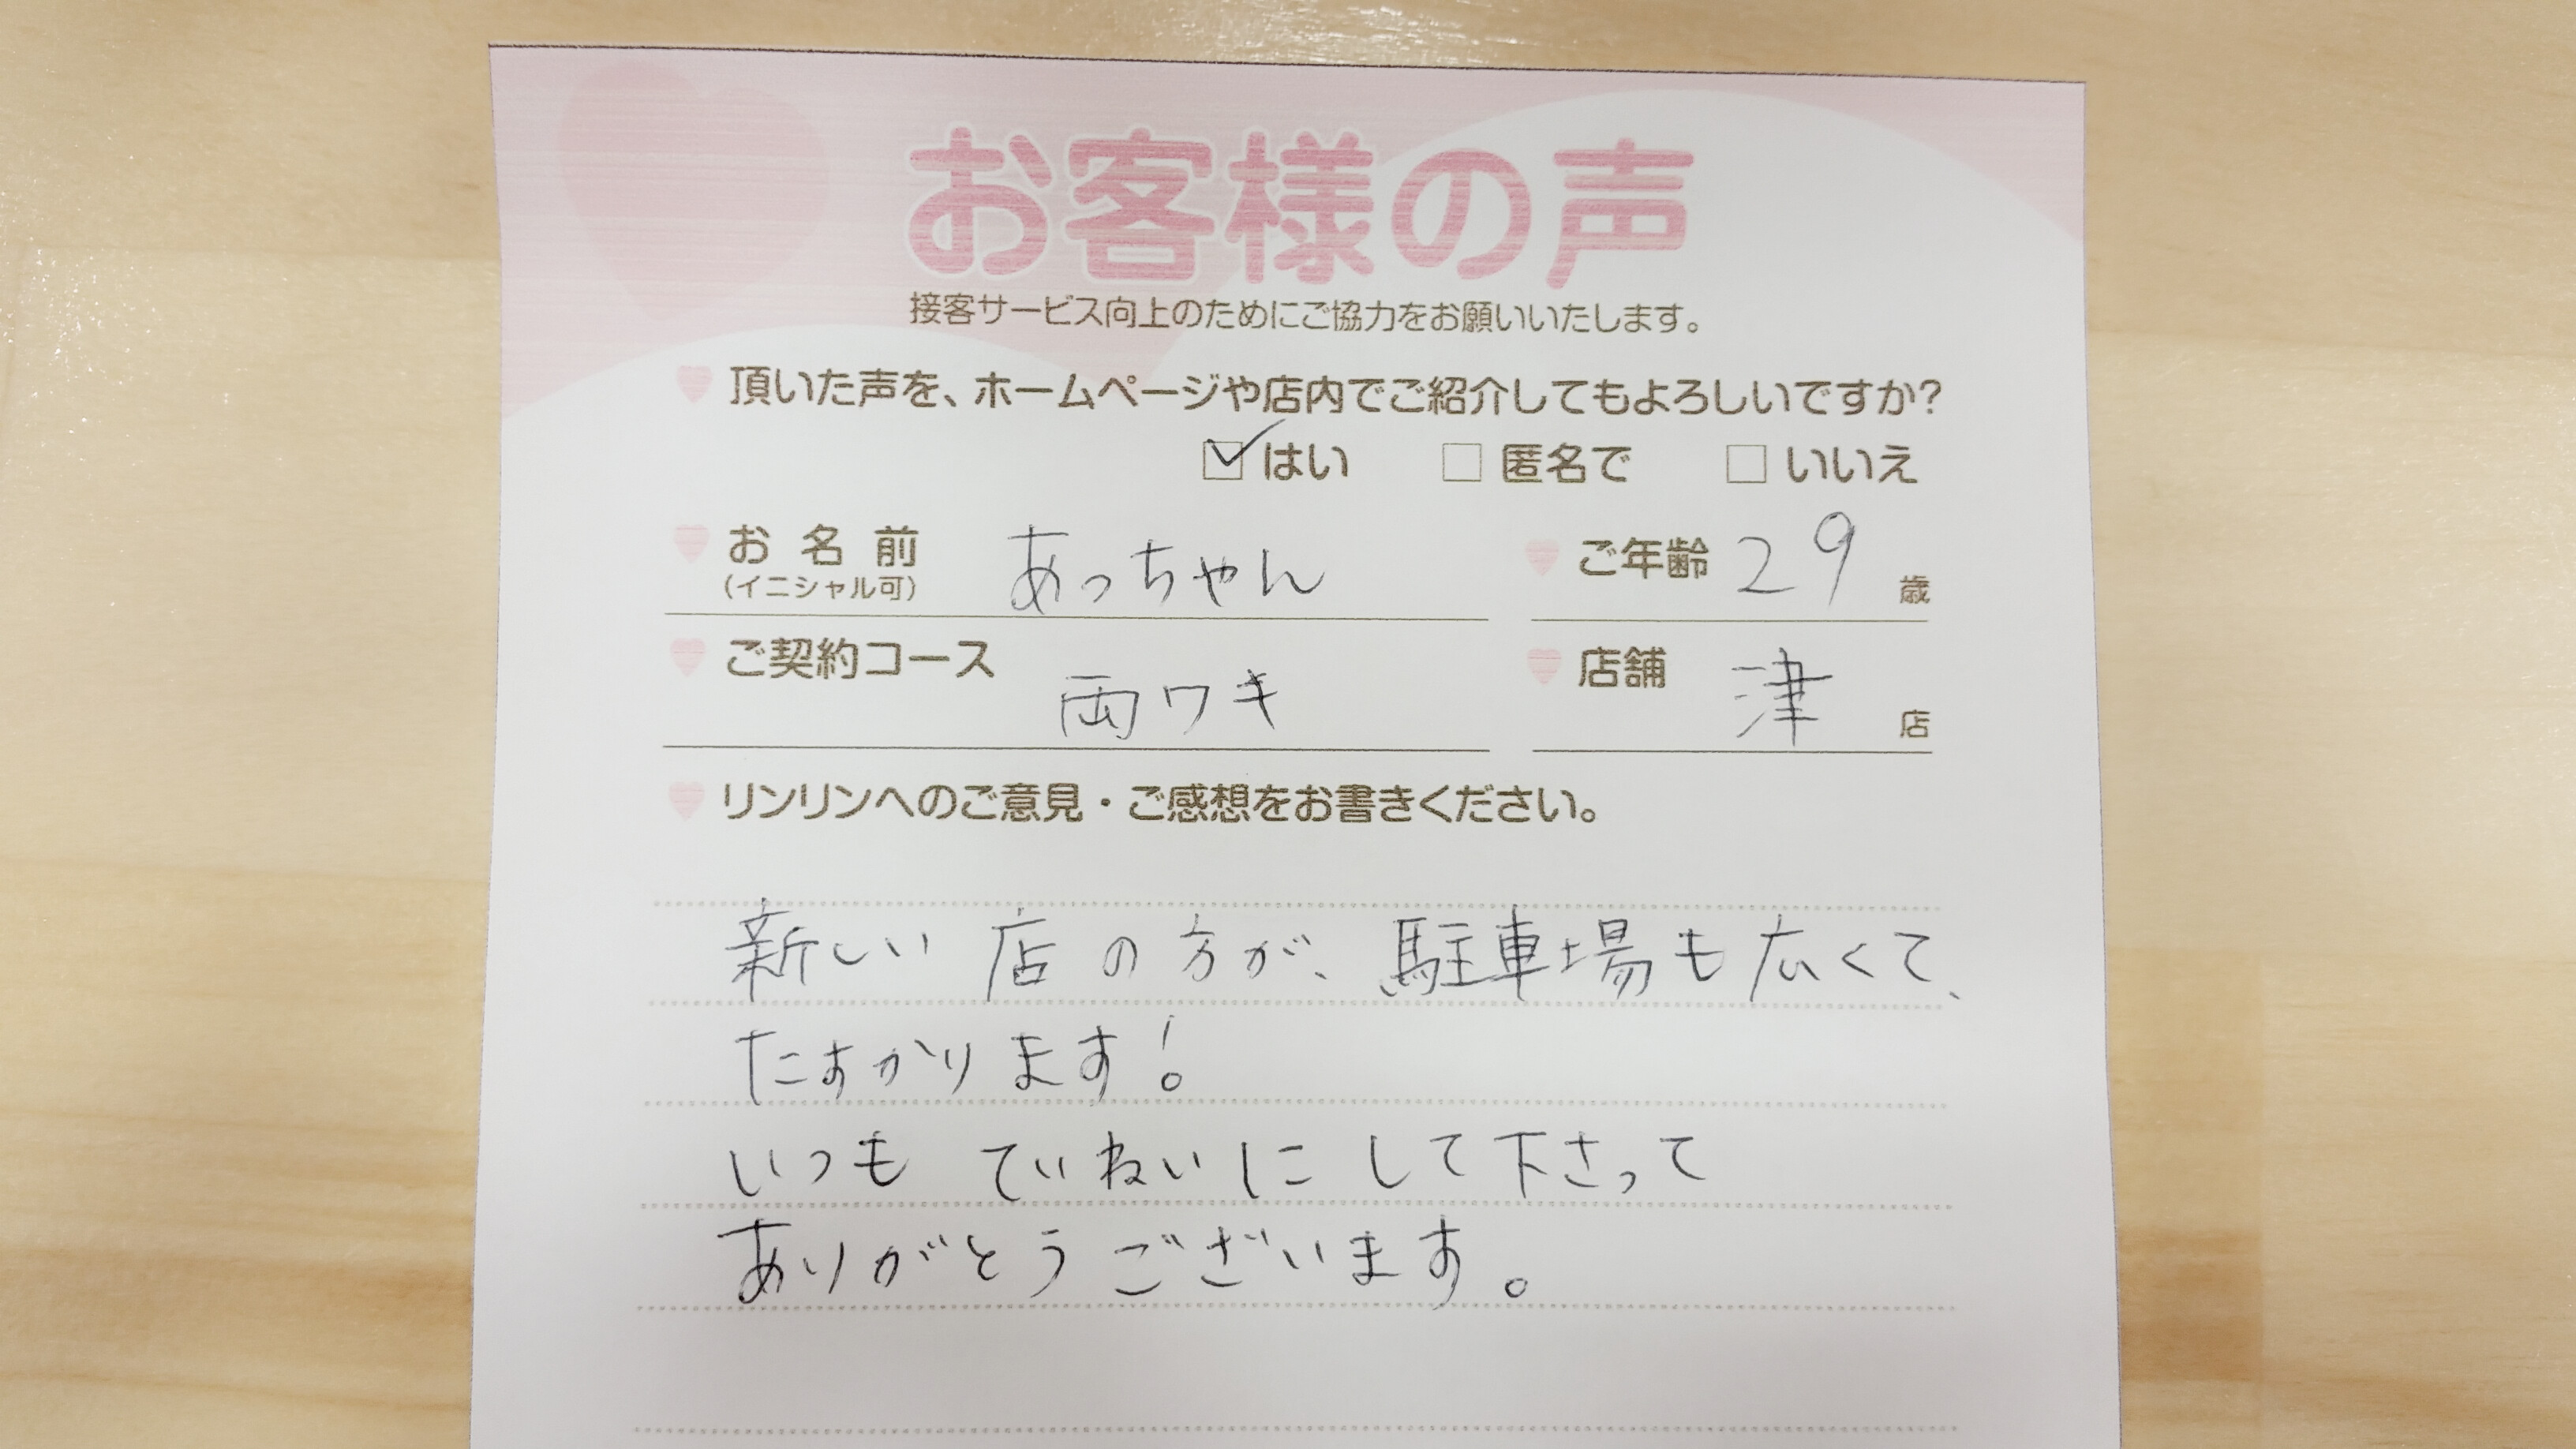 お客様の声
接客サービス向上のためにご協力をお願いいたします。
頂いた声を、ホームページや店内でご紹介してもよろしいですか?
はい 匿名で いいえ
お名前 あっちゃん ご年齢 29 歳
(イニシャル可)
ご契約コース 両ワキ 店舗 津 店
リンリンへのご意見・ご感想をお書きください。
新しい店の方が、駐車場も広くて、
たすかります!
いつも ていねいに して下さって
ありがとうございます。